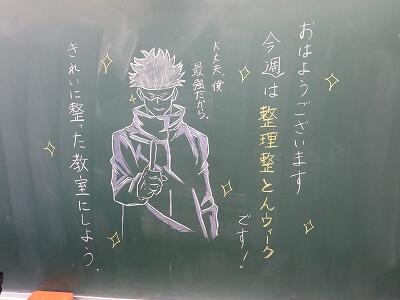 おはようございます
今週は整理整とんウィーク
です!
大丈夫。僕
最強だから。
きれいに整った教室にしよう。